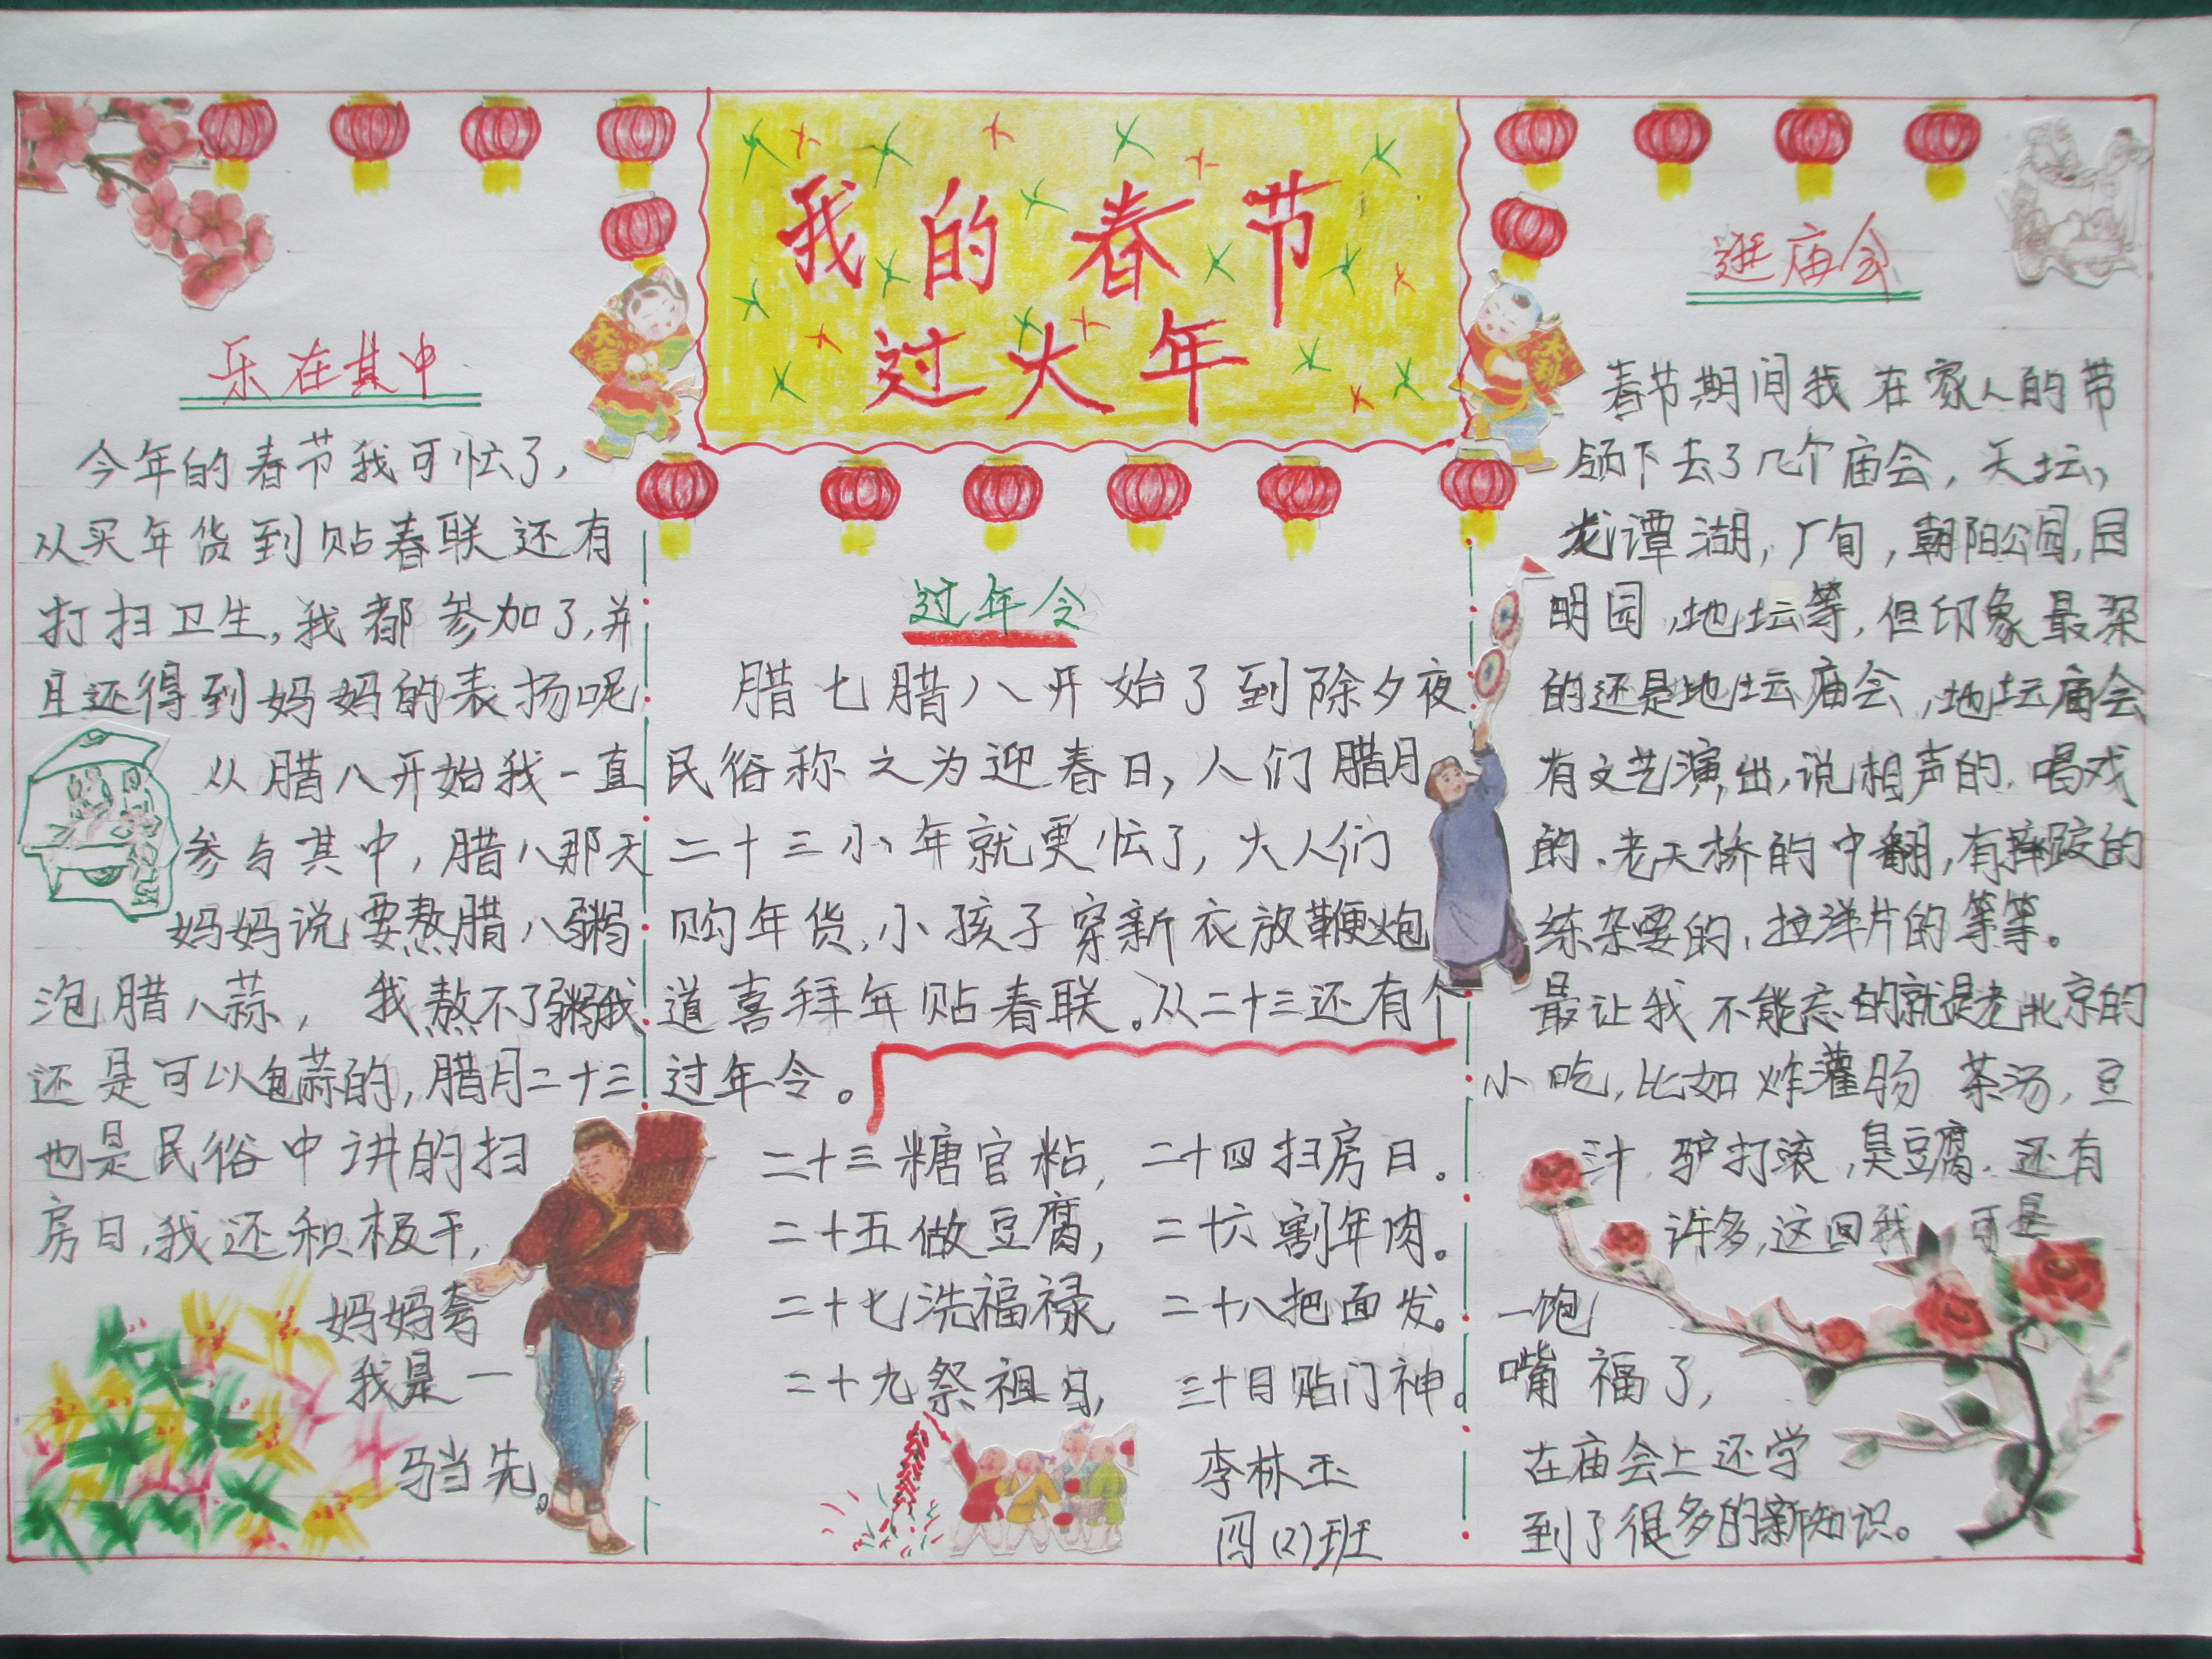 我的春节
过大年
乐在其中
今年的春节我可忙了,
从买年货到贴春联还有
打扫卫生,我都参加了,并
且还得到妈妈的表扬呢
从腊八开始我一直
参与其中,腊八那天
妈妈说要熬腊八粥
泡腊八蒜, 我熬不了粥我
还是可以包蒜的,腊月二十三
也是民俗中讲的扫
房日,我还积极干,
妈妈夸
我是一
马当先。
大吉
过年令
腊七腊八开始了到除夕夜
民俗称之为迎春日,人们腊月
二十三小年就更忙了,大人们
购年货,小孩子穿新衣放鞭炮
道喜拜年贴春联。从二十三还有个
过年令。
二十三糖官粘,二十四扫房日。
二十五做豆腐,二十六割年肉。
二十七洗福禄,二十八把面发。
二十九祭祖日,三十日贴门神。
李林玉
四(2)班
大利
逛庙会
春节期间我在家人的带
领下去了几个庙会,天坛,
龙谭湖,厂甸,朝阳公园,园
明园,地坛等,但印象最深
的还是地坛庙会,地坛庙会
有文艺演出,说相声的.唱戏
的.老天桥的中翻,有摔跤的
练杂耍的,拉洋片的等等。
最让我不能忘的就是老北京的
小吃,比如炸灌肠 茶汤,豆
汁.驴打滚,臭豆腐.还有
许多,这回我 可是
一饱
嘴福了,
在庙会上还学
到了很多的新知识。